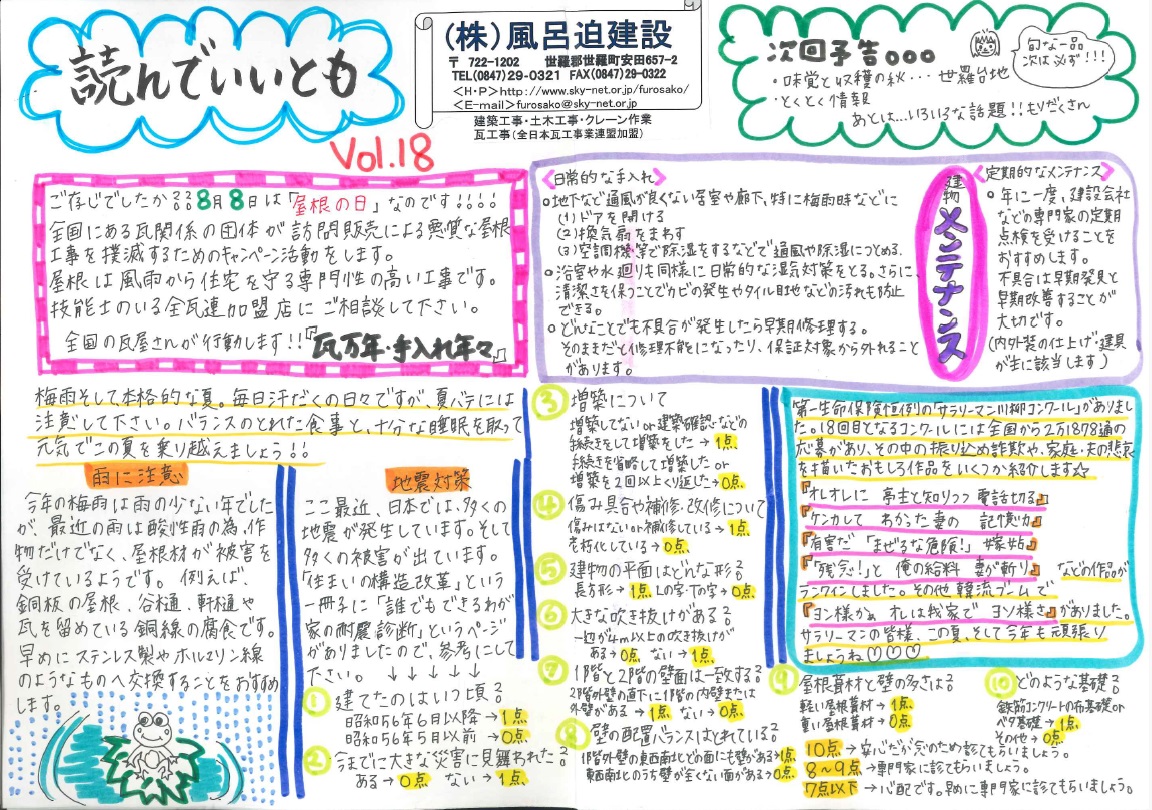 読んでいいとも
Vol.18
(株)風呂迫建設
〒 722-1202 世羅郡世羅町安田657-2
TEL(0847)29-0321 FAX(0847)29-0322
<H・P>http://www.sky-net.or.jp/furosako/
<E-mail>furosako@sky-net.or.jp
建築工事・土木工事・クレーン作業
瓦工事(全日本瓦工事業連盟加盟)
次回予告。。。
・味覚と収穫の秋… 世羅台地
・とくとく情報
あとは…いろいろな話題!!もりだくさん
旬な一品
次は必ず!!!
ご存じでしたか??? 8月8日は「屋根の日」なのです!!!!
全国にある瓦関係の団体が訪問販売による悪質な屋根
工事を撲滅するためのキャンペーン活動をします。
屋根は風雨から住宅を守る専門性の高い工事です。
技能士のいる全瓦連加盟店にご相談して下さい。
全国の瓦屋さんが行動します!!『瓦万年・手入れ年々』
建物メンテナンス
<日常的な手入れ>
○地下など通風が良くない居室や廊下、特に梅雨時などに
(1)ドアを開ける
(2)換気扇をまわす
(3)空調機等で除湿をするなどで通風や除湿につとめる.
○浴室や水廻りも同様に日常的な湿気対策をとる。さらに、
清潔さを保つことでカビの発生やタイル目地などの汚れも防止
できる。
○どんなことでも不具合が発生したら早期修理する。
そのままだと修理不能になったり、保証対象から外れること
があります。
<定期的なメンテナンス>
○年に一度、建設会社
などの専門家の定期
点検を受けることを
おすすめします。
不具合は早期発見と
早期改善することが
大切です。
(内外装の仕上げ・建具
が主に該当します)
梅雨そして本格的な夏。毎日汗だくの日々ですが、夏バテには
注意して下さい。バランスのとれた食事と、十分な睡眠を取って
元気でこの夏を乗り越えましょう!!
雨に注意
今年の梅雨は雨の少ない年でした
が、最近の雨は酸性雨の為、作
物だけでなく、屋根材が被害を
受けているようです。例えば
銅板の屋根、谷樋、軒樋や
瓦を留めている銅線の腐食です。
早めにステンレス製やホルマリン線
のようなものへ交換することをおすすめ
します。
地震対策
ここ最近、日本では、多くの
地震が発生しています。そして
多くの被害が出ています。
「住まいの構造改革」という
一冊子に「誰でもできるわが
家の耐震診断」というページ
がありましたので、参考にして
下さい。↓↓↓↓↓
① 建てたのはいつ頃?
昭和56年6月以降→1点
昭和56年5月以前→0点
② 今までに大きな災害に見舞われた?
ある→0点 ない→1点
③ 増築について
増築してないor建築確認などの
手続きをして増築をした→1点、
手続きを省略して増築したor
増築を2回以上くり返した→0点、
④ 傷み具合や補修・改修について
傷みはないor補修している→1点
老朽化している→0点
⑤ 建物の平面はどんな形?
長方形→1点 Lの字・Tの字→0点
⑥ 大きな吹き抜けがある?
一辺が4m以上の吹き抜けが
ある→0点 ない→1点、
⑦ 1階と2階の壁面は一致する?
2階外壁の直下に1階の内壁または
外壁がある→1点 ない→0点、
⑧ 壁の配置バランスはとれている?
1階外壁の東西南北どの面にも壁がある→1点
東西南北のうち壁が全くない面がある→0点
第一生命保険恒例の「サラリーマン川柳コンクール」がありまし
た。18回目となるコンクールには全国から2万1878通の
応募があり、その中の振り込め詐欺や、家庭・夫の悲哀
を描いたおもしろ作品をいくつか紹介します☆
『オレオレに 亭主と知りつつ 電話切る』
『ケンカして わかった妻の 記憶力』
『有害だ 「まぜるな危険!」 嫁姑』
『「残念!」と 俺の給料 妻が斬り』などの作品が
ランクインしました。その他 韓流ブームで
『ヨン様かぁ オレは我家で ヨソ様さ』がありました。
サラリーマンの皆様、この夏、そして今年も頑張り
ましょうね♡♡♡
⑨ 屋根葺材と壁の多さは?
軽い屋根葺材→1点、
重い屋根葺材→0点
⑩ どのような基礎?
鉄筋コンクリートの布基礎or
ベタ基礎→1点、
その他→0点
10点→安心だが念のため診てもらいましょう。
8~9点→専門家に診てもらいましょう。
7点以下→心配です。早めに専門家に診てもらいましょう。